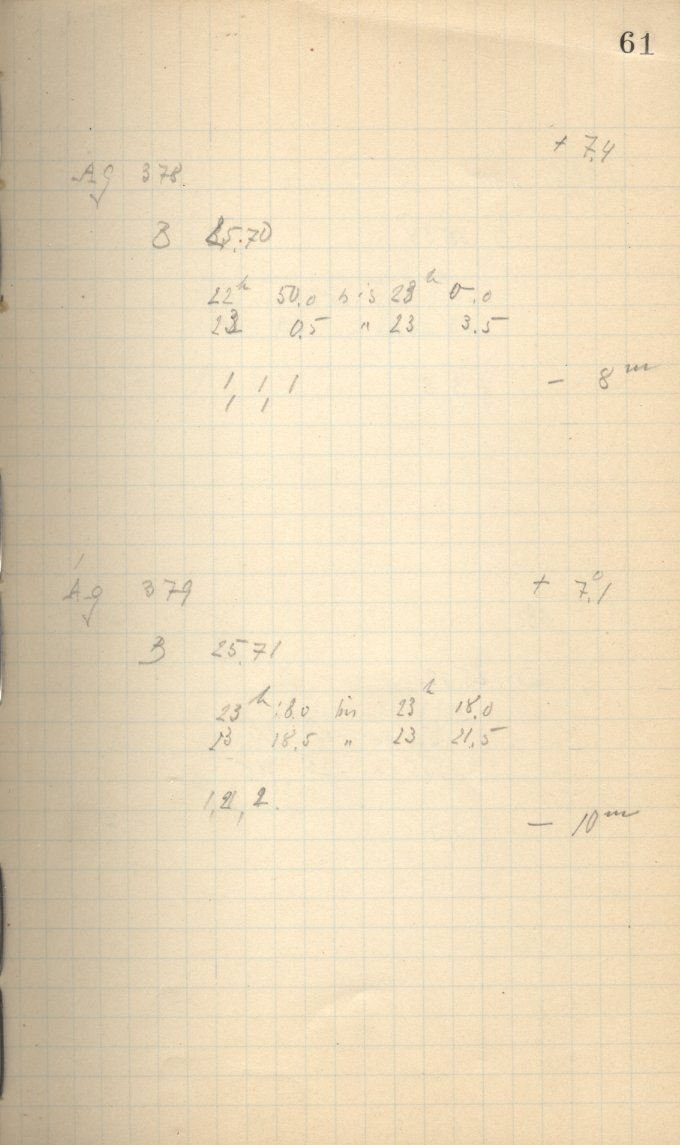 61
+ 7,4
Ag 378
B 25.70
22h 50,0 bis 23h 0,0
23 0,5 " 23 3.5
1 1 1
1 1
- 8m
Ag 379
+ 7,°1
B 25,71
23h 8.0 bis 23h 18,0
23 18,5 " 23 21,5
1, 2, 2.
- 10m